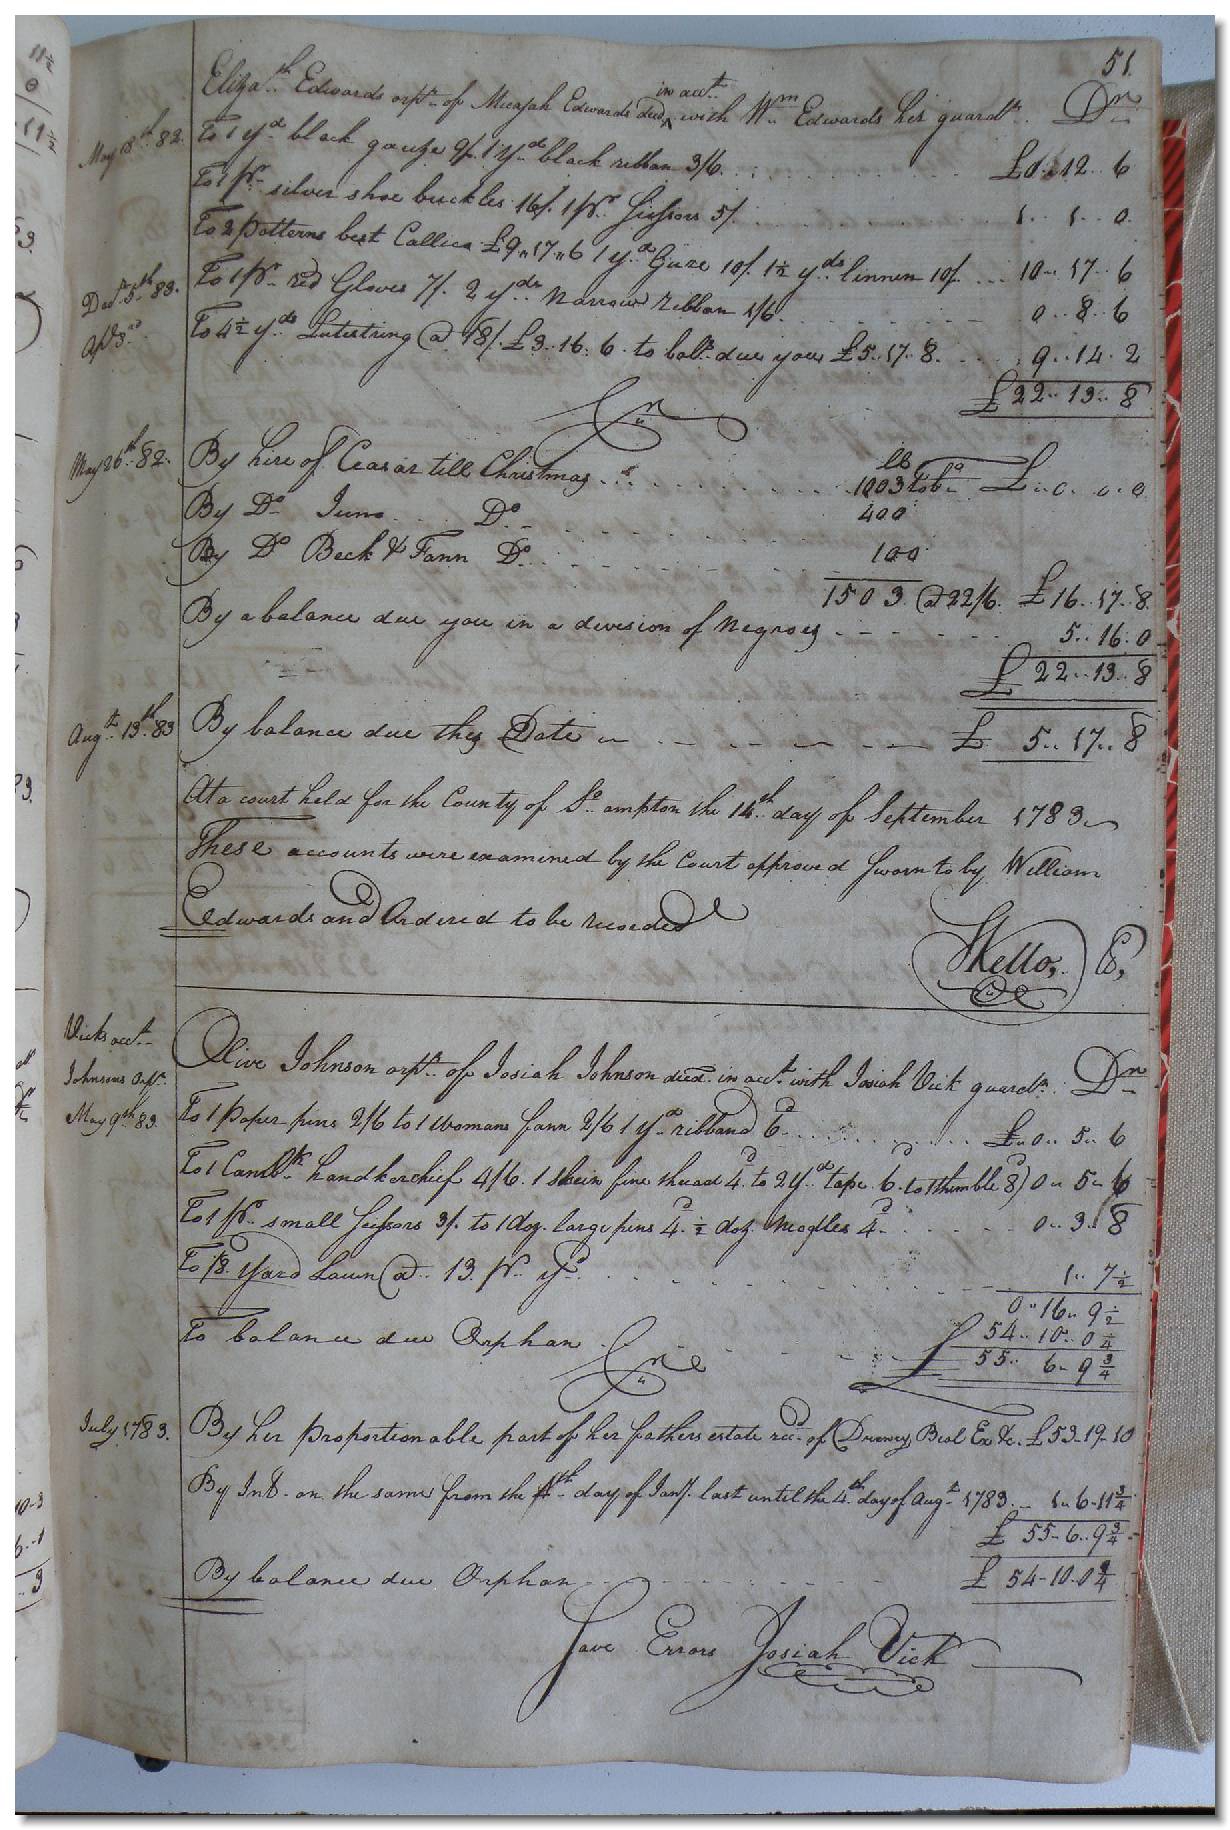 51.
Elizath. Edwards orpn. of Micajah Edwards decd. in acct. with Wm. Edwards her guardn. Dr
May 18th. 82. To 1 yd black gauze 9/. 1 yd. black ribbon 3/6 £0..12..6
To 1 pr. silver shoe buckles 16/. 1 pr. Scissors 5/. 1..1..0
To 2 Patterns best Callico £9..17..6 1 yd. Gauze 10/. 1½ yds. linnen 10/. 10..17..6
Decr. 5th. 83. To 1 pr. red Gloves 7/. 2 yds. narrow ribbon 1/6 0..8..6
Apl. 3rd. To 4½ yds. Lutestring @ 18/. £3..16..6. to balce. due you £5..17..8. 9..14..2
£22..13..8
Cr
May 26th. 82. By hire of Ceasar till Christmas lb 1003 tobo. £..0..0..0
By Do. Juno Do. 400
By Do Beck & Fann Do. 100
1503 @ 22/6. £16..17..8
By a balance due you in a division of Negroes 5..16..0
£22..13..8
Augt. 13th. 83 By balance due this Date £5..17..8
At a court held for the County of So. ampton the 14th. day of September 1783
These accounts were examined by the Court approved Sworn to by William
Edwards and Ordered to be recorded
Kello, C,
Vicks acct.
Johnsons Orpn.
Olive Johnson orpn. of Josiah Johnson decd. in acct. with Josiah Vick guardn. Dr
May 9th 83. To 1 paper pins 2/6 to 1 womans fann 2/6 1 yd. ribband 6d £..0..5..6
To 1 Cambk. handkerchief 4/6. 1 skein fine thread 4d. to 2 yd tape 6d. to 1 thimble 8d 0..5..6
To 1 pr. small Scissors 3/. to 1 doz. large pins 4d. ½ doz. needles 4d. 0..3..8
To 1/8 Yard Lawn @ 13. pr. yd. 1..7½
0..16..9½
To balance due Orphan 54..10..0¼
£55..6..9¾
Cr
July 1783. By her proportionable part of her fathers estate recd. of Drewry Beal Ex &c. £53..19..10
By Int. on the same from the 4th. day of Jany. last until the 4th. day of Augt. 1783. 1..6..11¾
£55..6..9¾
By balance due Orphan £54..10..0¼
Save Errors Josiah Vick